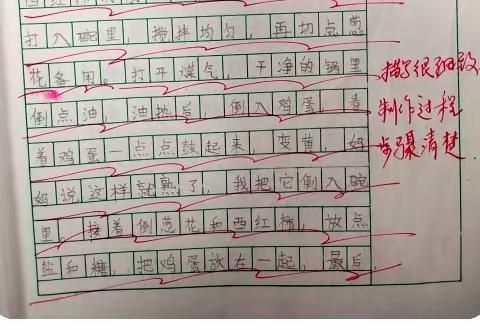 打入碗里，搅拌均匀，再切点葱
花备用。打开煤气，干净的锅里
倒点油，油热后，倒入鸡蛋，看
着鸡蛋一点点鼓起来，变黄，妈
妈说这样就熟了，我把它倒入碗
里，接着倒葱花和西红柿，放点
盐和糖，把鸡蛋放在一起，最后，
描写很细致
制作过程
步骤清楚